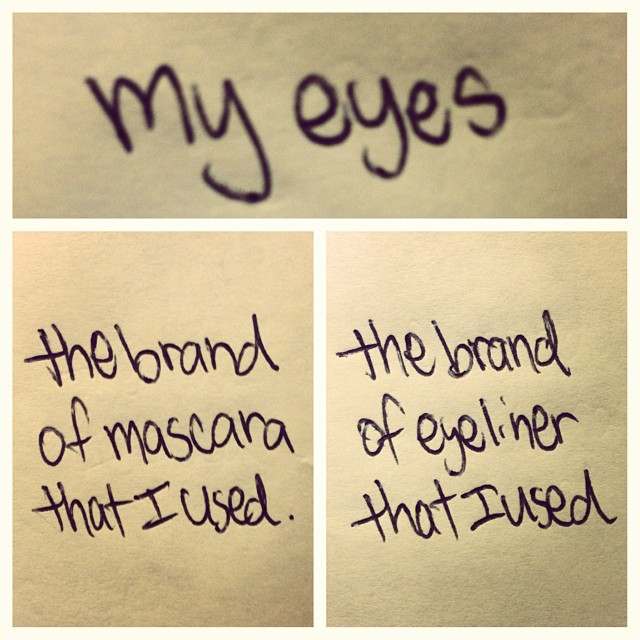 my eyes
the brand
of mascara
that I used.
the brand
of eyeliner
that I used